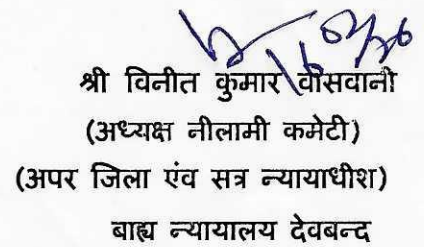 श्री विनीत कुमार वासवानी
(अध्यक्ष नीलामी कमेटी)
(अपर जिला एंव सत्र न्यायाधीश)
बाह्य न्यायालय देवबन्द